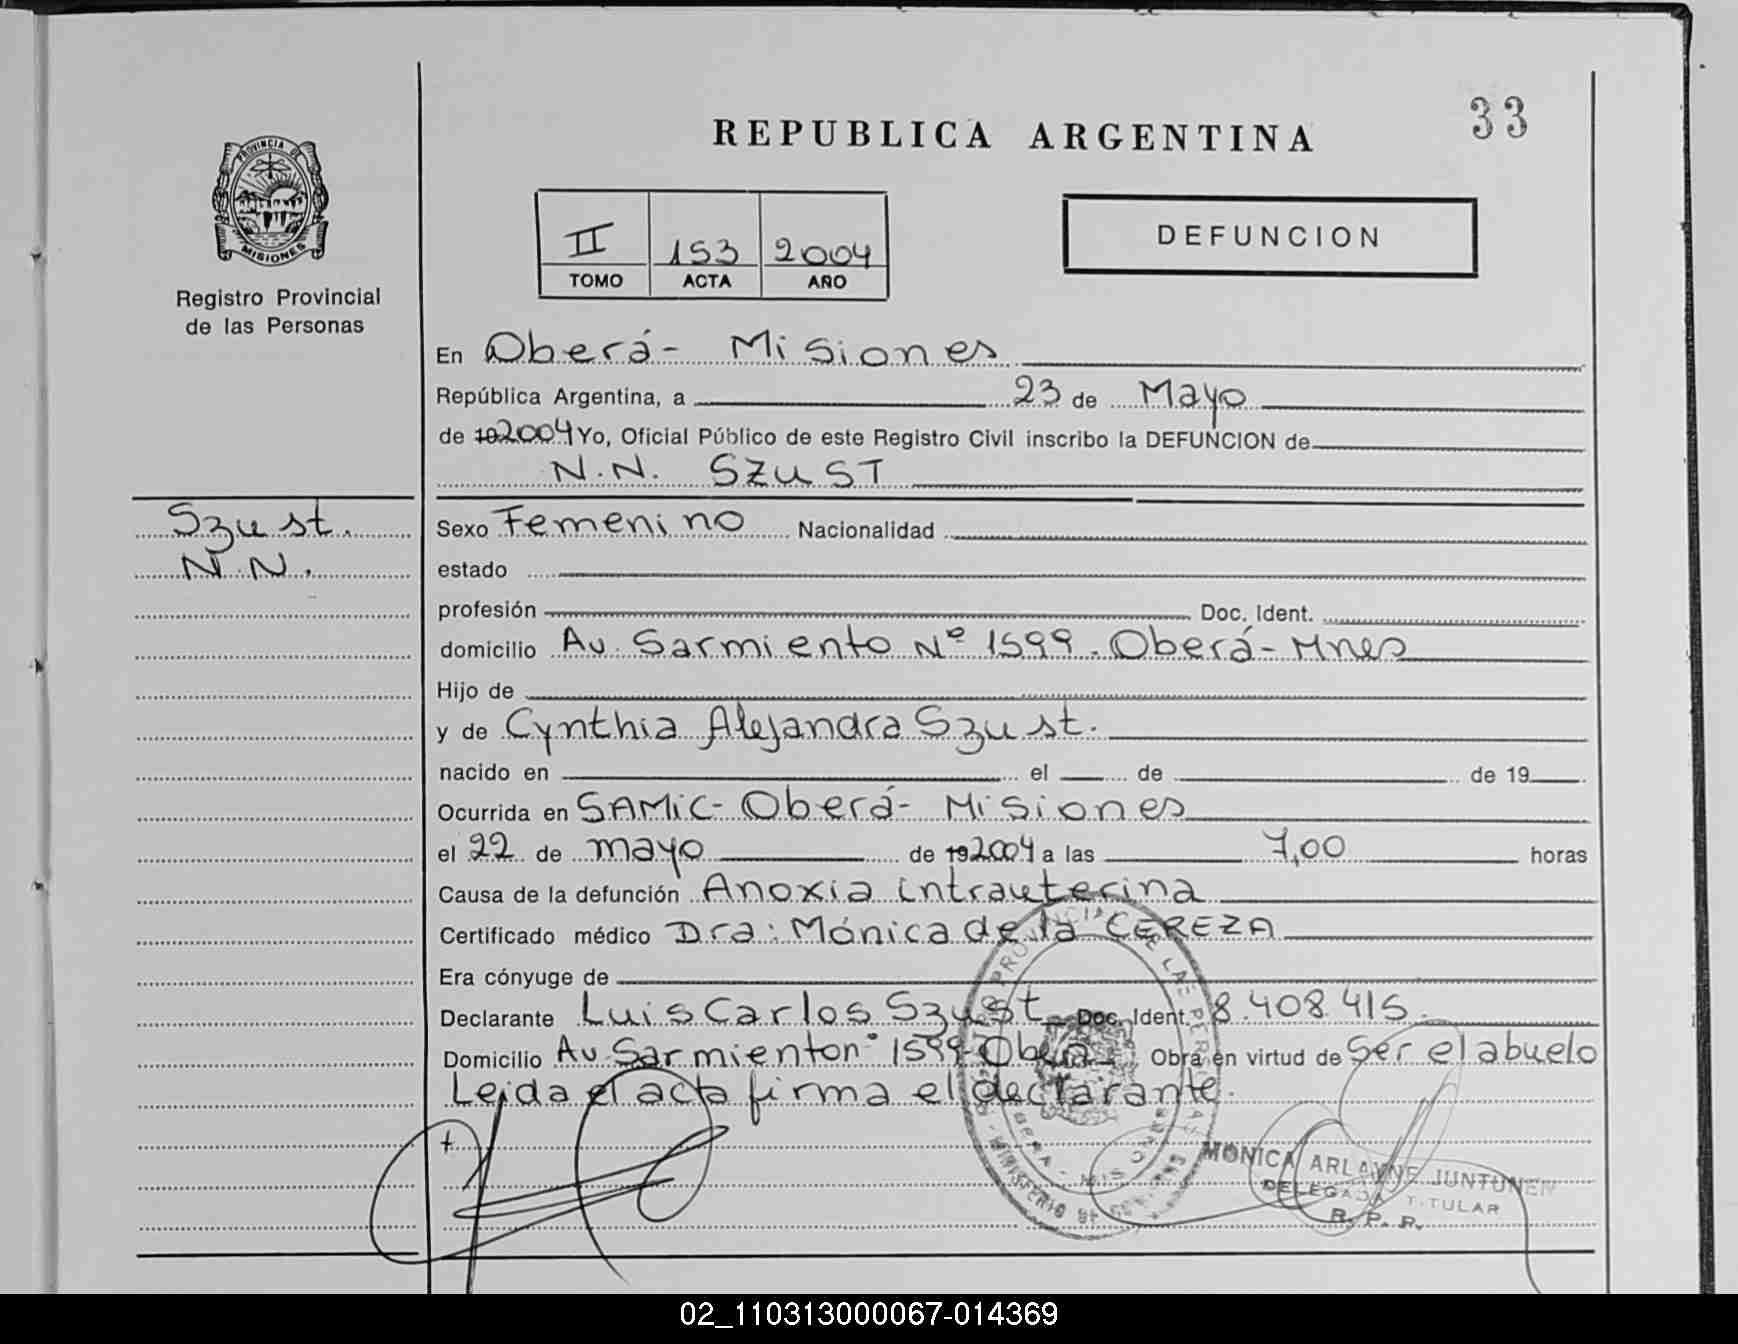 33
REPUBLICA ARGENTINA
PROVINCIA DE
MISIONES
Registro Provincial
de las Personas
II 153 2004
TOMO ACTA AÑO
DEFUNCION
En Oberá- Misiones
República Argentina, a 23 de Mayo
de 192004 Yo, Oficial Público de este Registro Civil inscribo la DEFUNCION de
N.N. SZUST
Szust.
N.N.
Sexo Femenino Nacionalidad
estado
profesión Doc. Ident.
domicilio Av. Sarmiento Nº 1599. Oberá- Mnes
Hijo de
y de Cynthia Alejandra Szust.
nacido en el de de 19
Ocurrida en SAMiC- Oberá- Misiones
el 22 de mayo de 192004 a las 7,00 horas
Causa de la defunción Anoxia intrauterina
Certificado médico Dra: Mónica de la CEREZA
Era cónyuge de
Declarante Luis Carlos Szust Doc. Ident. 8.408.415.
Domicilio Av. Sarmiento nº 1599 Oberá Obra en virtud de Ser el abuelo
Leida el acta firma el declarante.
MONICA ARLAYNE JUNTUNEN
DELEGADA TITULAR
R. P. P.
02_110313000067-014369